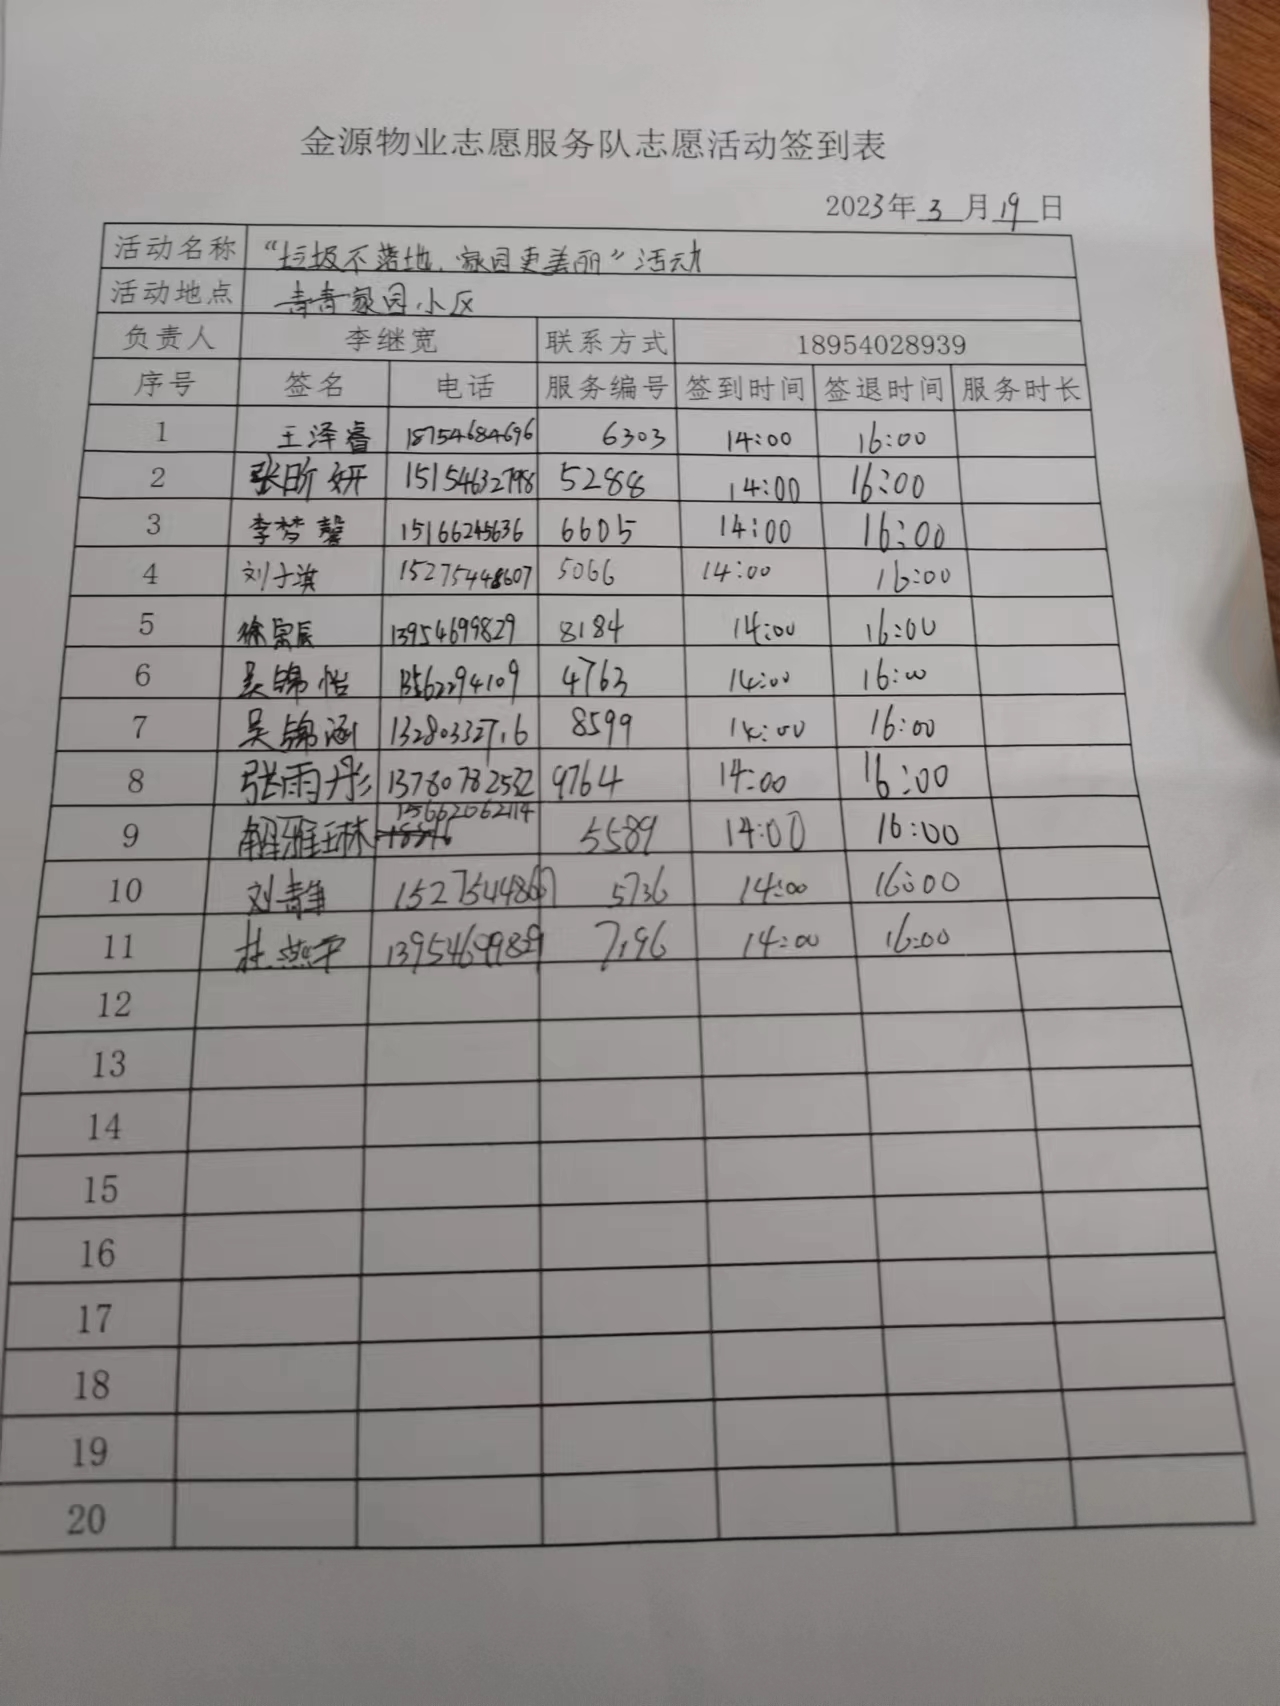 金源物业志愿服务队志愿活动签到表
2023年 3 月 19 日
活动名称 “垃圾不落地、家园更美丽”活动
活动地点 青青家园小区
负责人 李继宽 联系方式 18954028939
序号 签名 电话 服务编号 签到时间 签退时间 服务时长
1 王泽睿 18754684696 6303 14:00 16:00
2 张昕妍 15154632798 5288 14:00 16:00
3 李梦馨 15166245636 6605 14:00 16:00
4 刘子淇 15275448607 5066 14:00 16:00
5 徐 辰 13954699829 8184 14:00 16:00
6 吴锦怡 13562294109 4763 14:00 16:00
7 吴锦涵 13280332716 8599 14:00 16:00
8 张雨彤 13780782532 9764 14:00 16:00
9 解雅琳 15662062114 5589 14:00 16:00
10 刘青 15275448607 5736 14:00 16:00
11 杜燕平 13954699829 7196 14:00 16:00
12
13
14
15
16
17
18
19
20